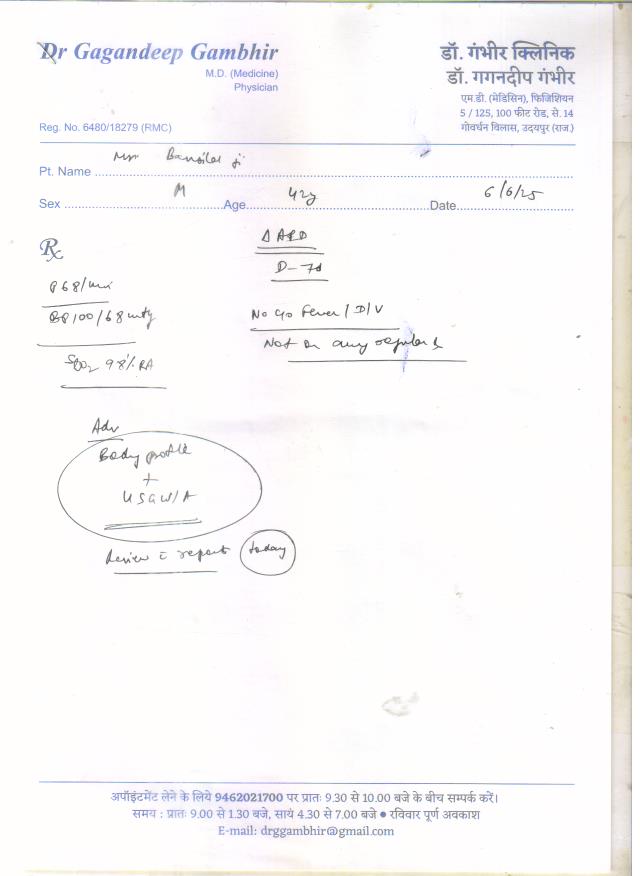 Dr Gagandeep Gambhir
M.D. (Medicine)
Physician
Reg. No. 6480/18279 (RMC)
डॉ. गंभीर क्लिनिक
डॉ. गगनदीप गंभीर
एम.डी. (मेडिसिन), फिजिशियन
5 / 125, 100 फीट रोड, से. 14
गोवर्धन विलास, उदयपुर (राज.)
Pt. Name
Sex M Age 42y Date 6/6/25
Rx
P 68/min
BP 100/68 mmHg
SPO2 98% RA
D-7d
No H/O Fever / D/V
Not on any regular
Adv
Body profile
+
USG W/A
Review c reports today
अपॉइंटमेंट लेने के लिये 9462021700 पर प्रातः 9.30 से 10.00 बजे के बीच सम्पर्क करें।
समय : प्रातः 9.00 से 1.30 बजे, सायं 4.30 से 7.00 बजे ● रविवार पूर्ण अवकाश
E-mail: drggambhir@gmail.com